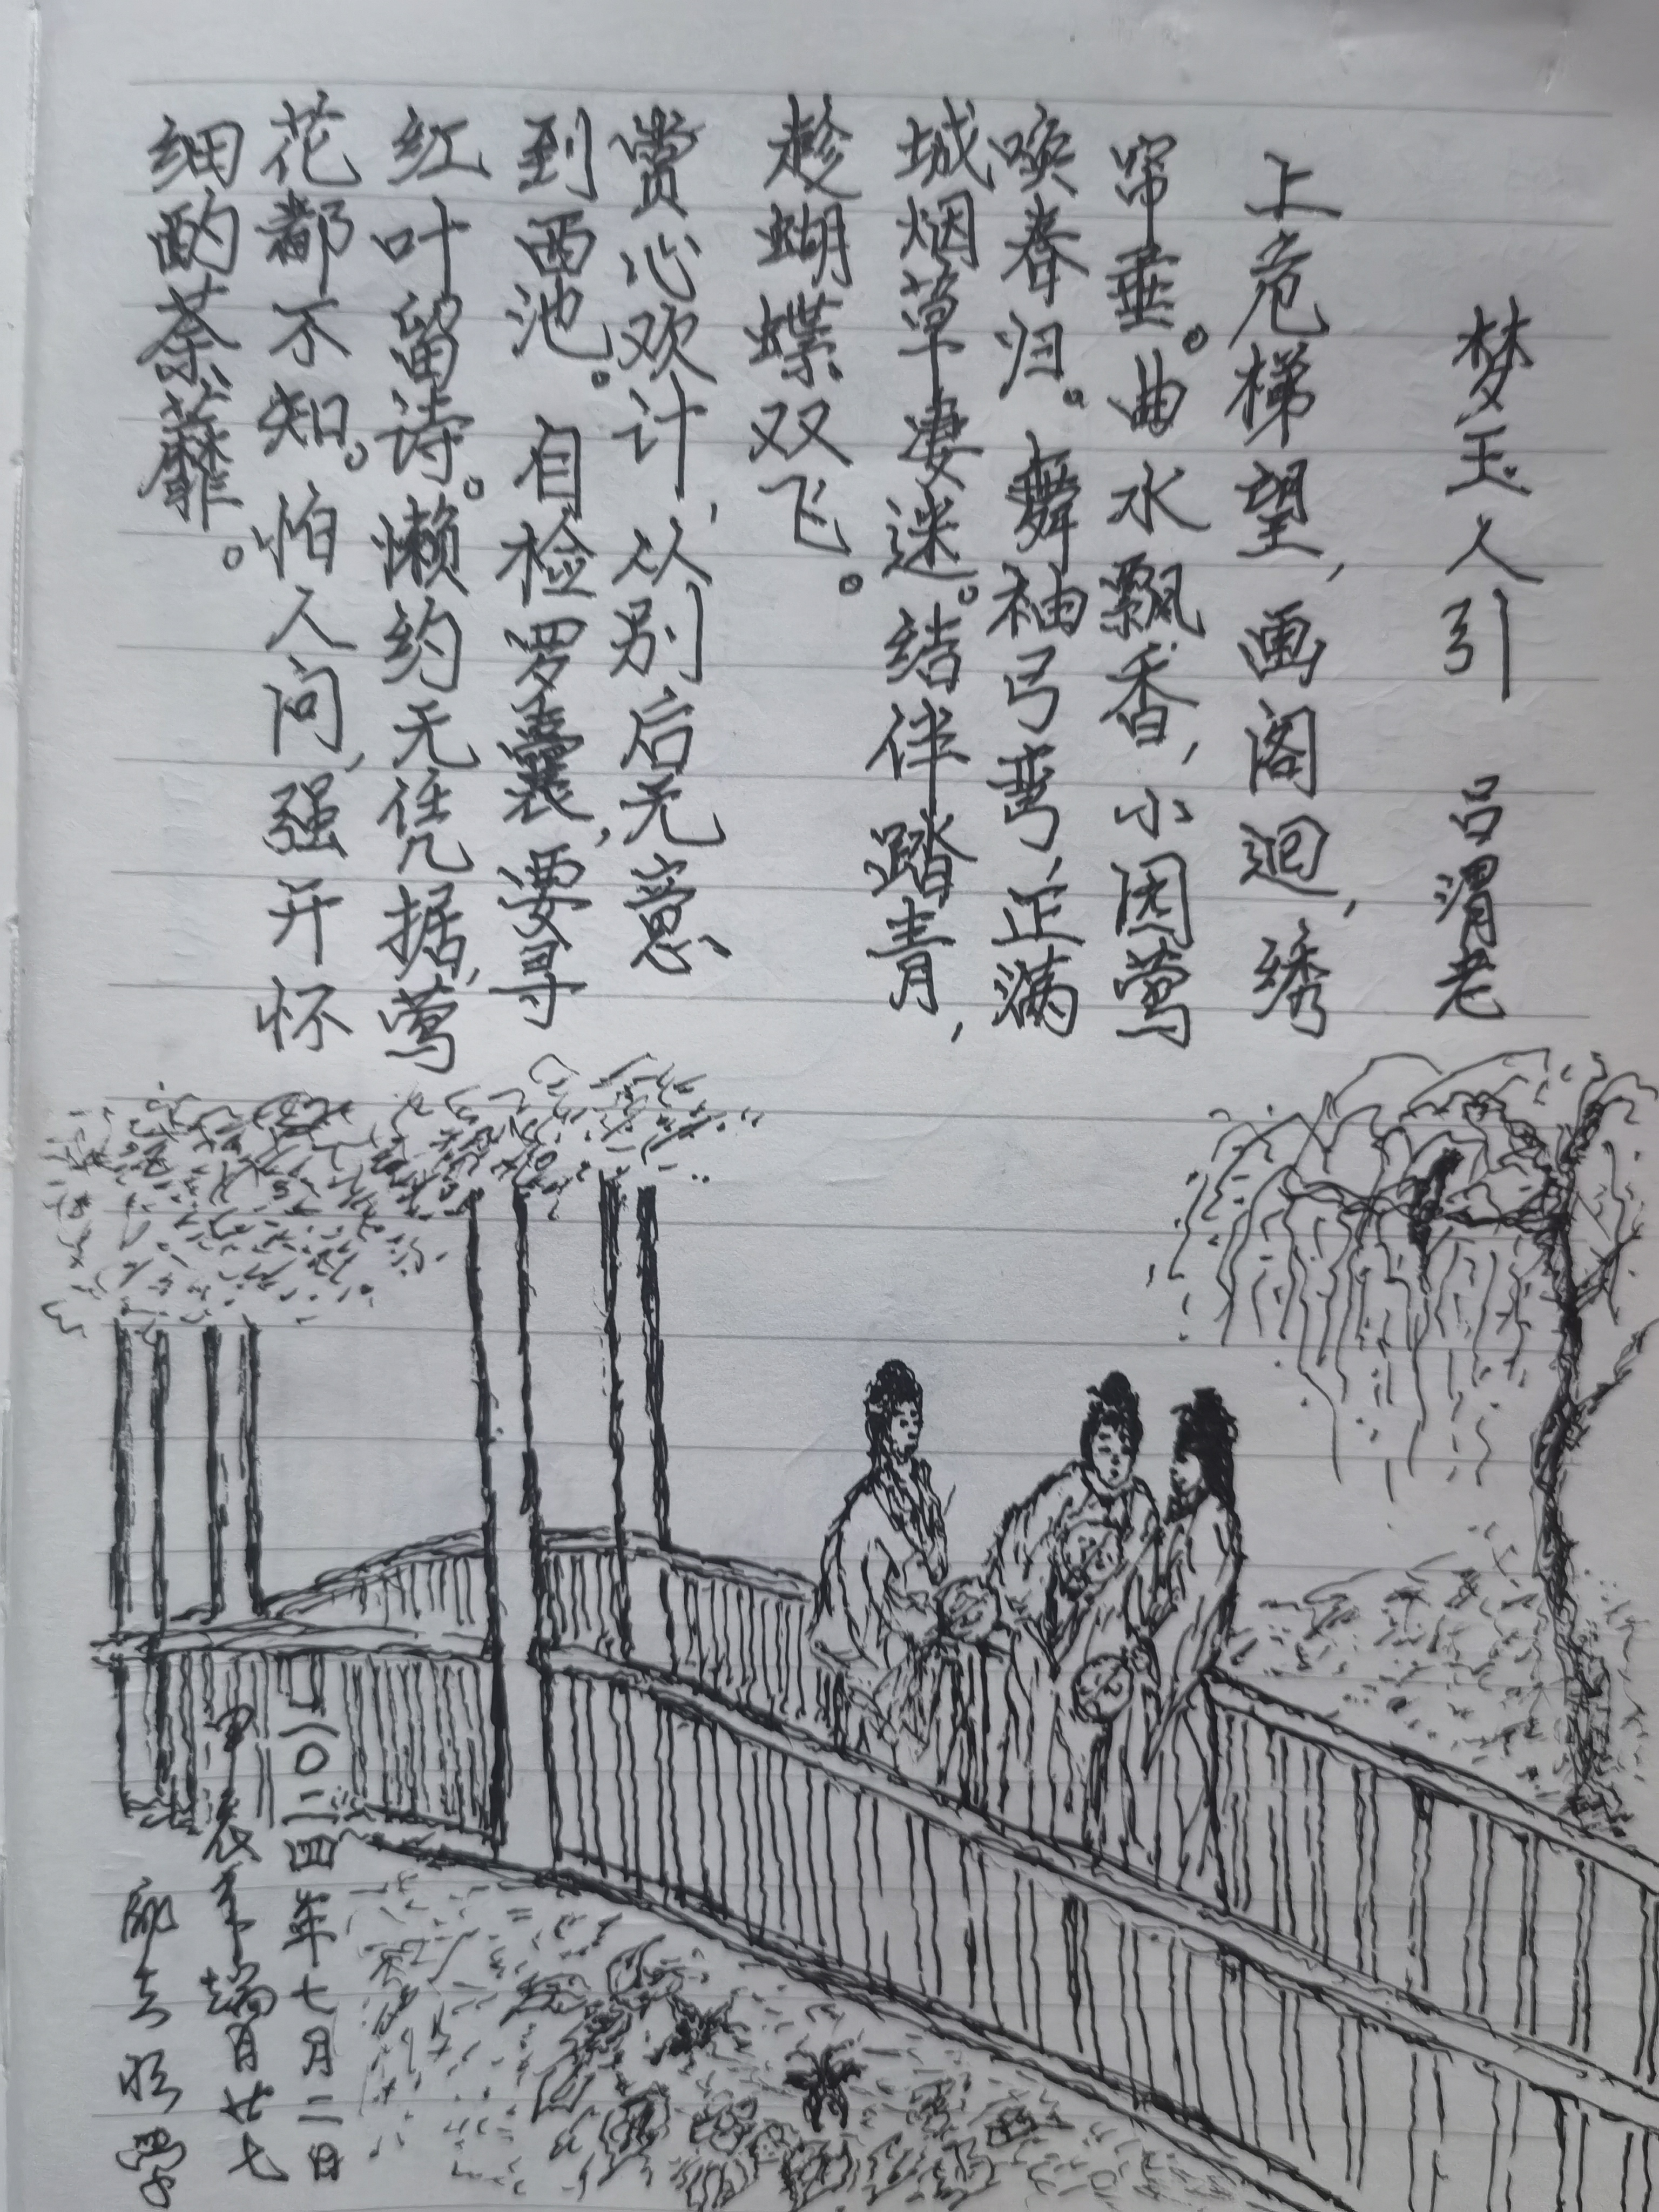 梦玉人引 吕渭老
上危梯望,画阁迥,绣
帘垂。曲水飘香,小园莺
唤春归。舞袖弓弯,正满
城烟草凄迷。结伴踏青,
趁蝴蝶双飞。
赏心欢计,从别后无意
到西池。自检罗囊,要寻
红叶留诗。懒约无凭据,莺
花都不知。怕人问,强开怀
细酌荼蘼。
二〇二四年七月二日
甲辰年端月廿七